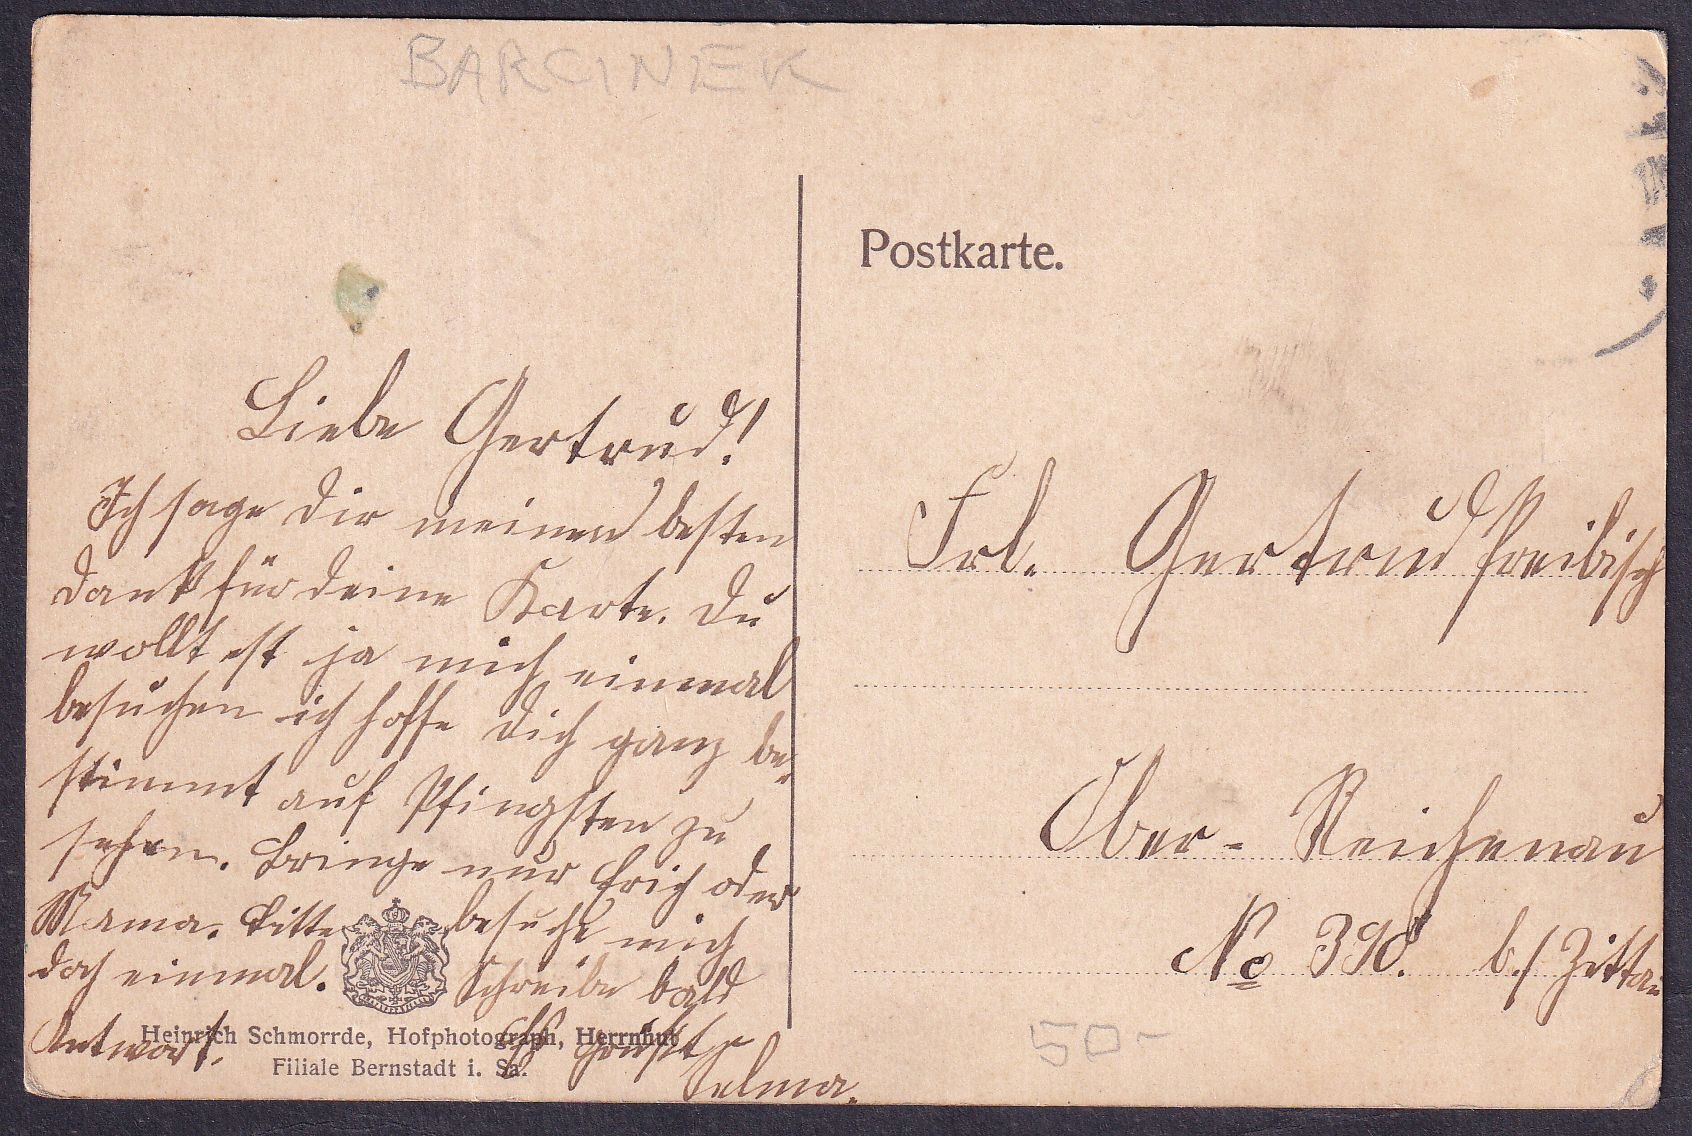 BARCINEK
Postkarte.
Liebe Gertrud!
Ich sage dir meinen besten
Dank für deine Karte. Du
wolltest ja mich einmal
besuchen ich hoffe dich ganz be-
stimmt auf Pfingsten zu
sehen. Bringe nur Erich oder
Mama. Bitte besuche mich
doch einmal. Schreibe bald
Antwort. Es grüßt
Selma.
Heinrich Schmorrde, Hofphotograph, Herrnhut
Filiale Bernstadt i. Sa.
Frl. Gertrud Preibisch
Ober-Reichenau
No 398. b./Zittau
50-